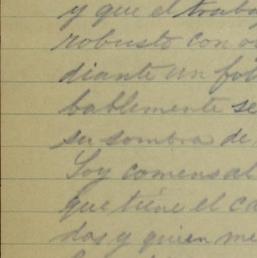 y que el traba
robusto con o
diante un fo
bablemente se
su sombra de
Soy comensal
que tiene el ca
dos y quien me